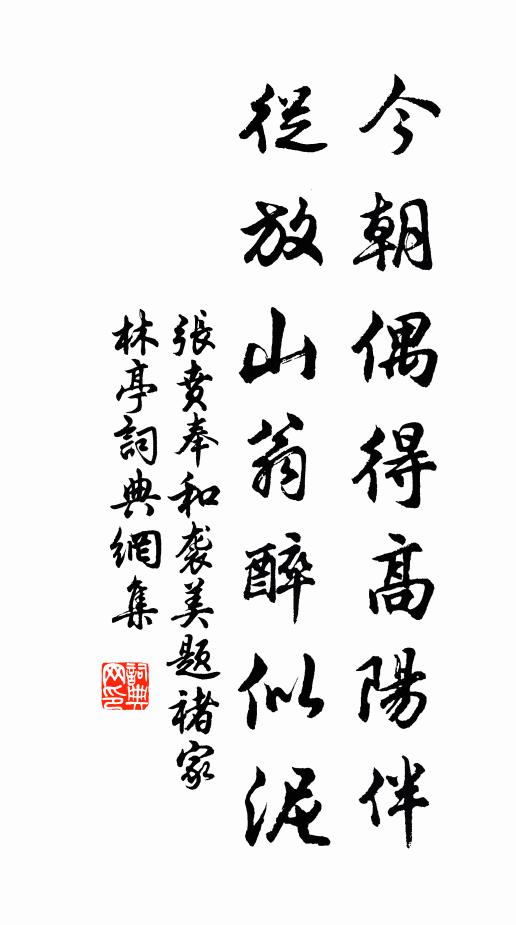 今朝偶得高陽伴
從放山翁醉似泥
張賁奉和袭美题褚家
林亭詞典網集
詞典网印